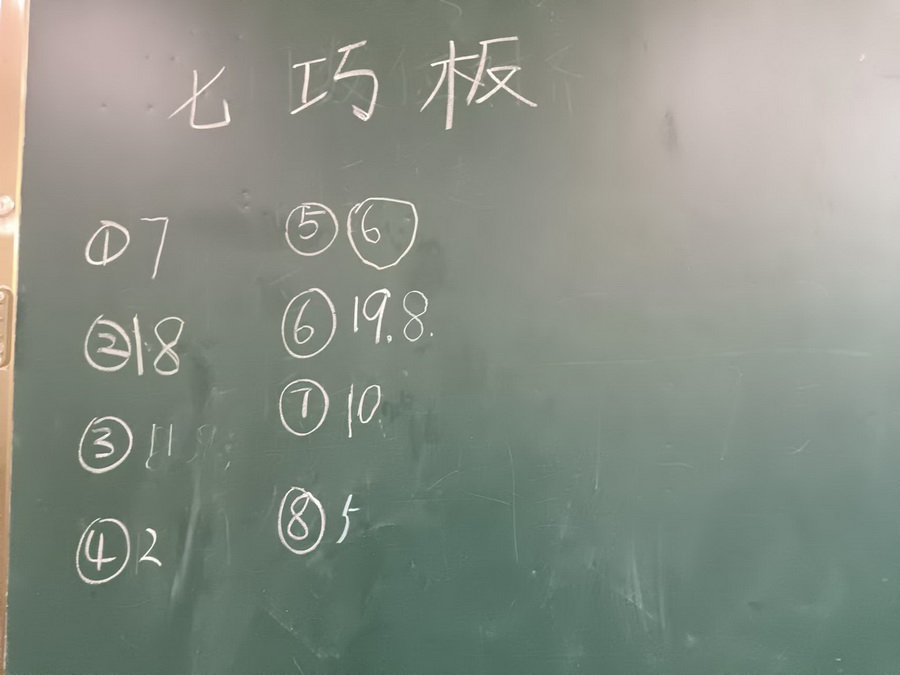 七巧板
①7
②1.8
③11
④2
⑤6
⑥19.8.
⑦10
⑧5